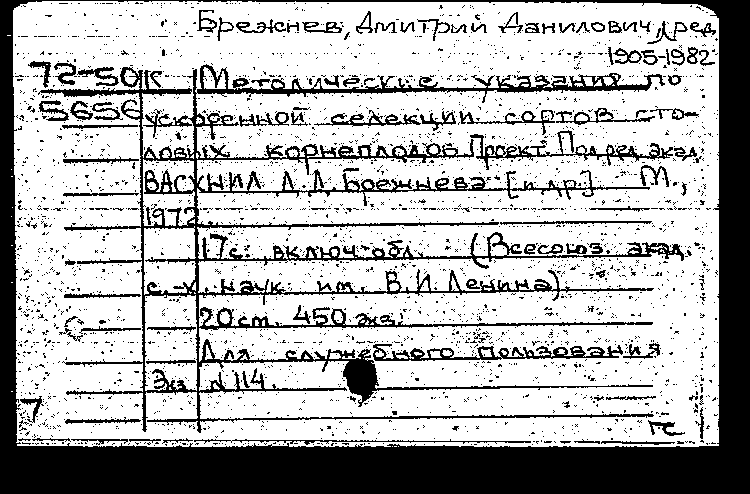 Брежнев, Дмитрий Данилович, ред.
1905-1982
72-50К Методические указания по
5656 ускоренной селекции сортов сто-
ловых корнеплодов. Проект. Под ред. акад.
ВАСХНИЛ Д. Д. Брежнева [и др.] М.,
1972.
17 с. включ. обл. (Всесоюз. акад.
с.-х. наук им. В. И. Ленина).
20 см. 450 экз.
Для служебного пользования
Экз. № 114.
7